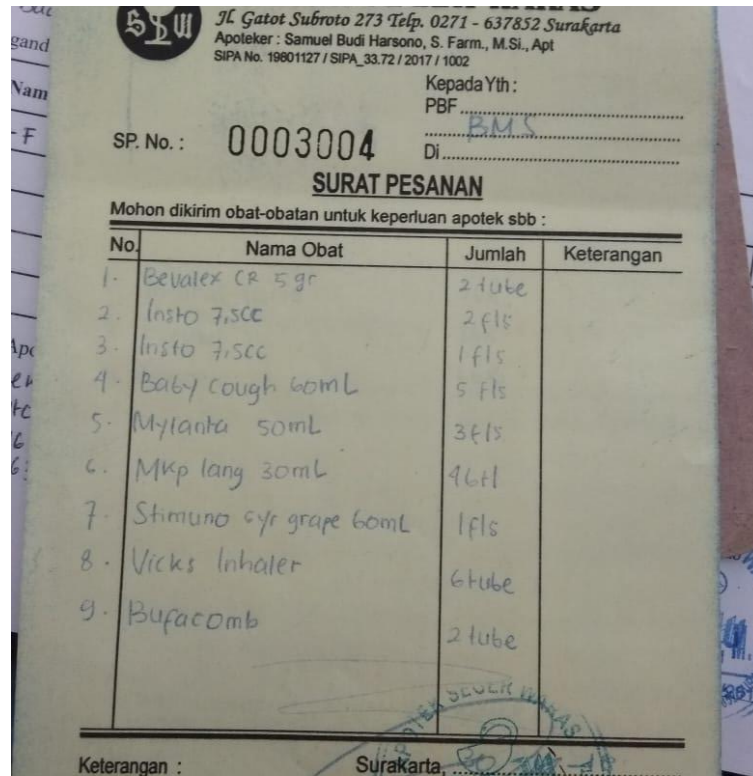 SYW
Jl. Gatot Subroto 273 Telp. 0271 - 637852 Surakarta
Apoteker : Samuel Budi Harsono, S. Farm., M.Si., Apt
SIPA No. 19801127 / SIPA_33.72 / 2017 / 1002
Kepada Yth :
PBF
BMS
SP. No. : 0003004 Di
SURAT PESANAN
Mohon dikirim obat-obatan untuk keperluan apotek sbb :
No. Nama Obat Jumlah Keterangan
1. Bevalex CR 5 gr 2 tube
2. Insto 7,5cc 2 fls
3. Insto 7,5cc 1 fls
4. Baby cough 60mL 5 fls
5. Mylanta 50mL 3 fls
6. MKp lang 30mL 4 btl
7. Stimuno syr grape 60mL 1 fls
8. Vicks Inhaler 6 tube
9. Bufacomb 2 tube
APOTEK SEGER WARAS
Keterangan : Surakarta,